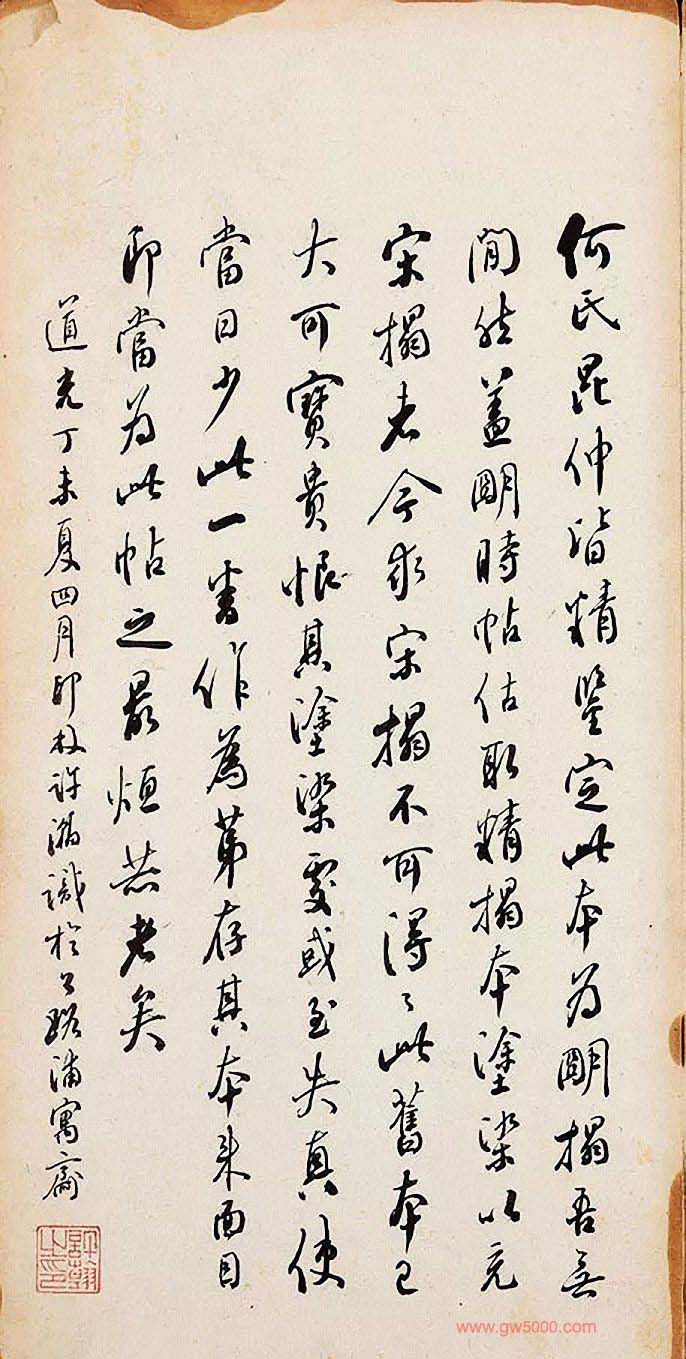 何氏昆仲皆精鑒定此本為明搨吾無
間然蓋明時帖估取精搨本塗染以充
宋搨者今求宋搨不可得得此舊本已
大可寶貴恨其塗染處或至失真使
當日少此一番作為第存其本来面目
即當為此帖之最烜赫者矣
道光丁未夏四月印林許瀚識於公路浦寓齋
許瀚之印
www.gw5000.com